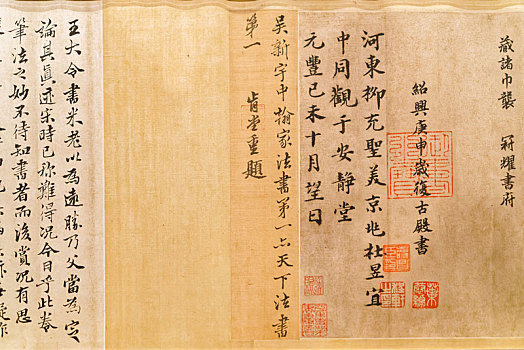 藏諸巾襲 冠耀書府
紹興庚申歲復古殿書
河東柳充聖美京兆杜昱宜
中同觀于安靜堂
元豐己未十月望日
吳新宇中翰家法書第一亦天下法書
第一 肯堂重題
王大令書米老以為遠勝乃父當為定
論其真迹宋時已稱難得況今日乎此卷
筆法之妙不待知書者而後賞況有思